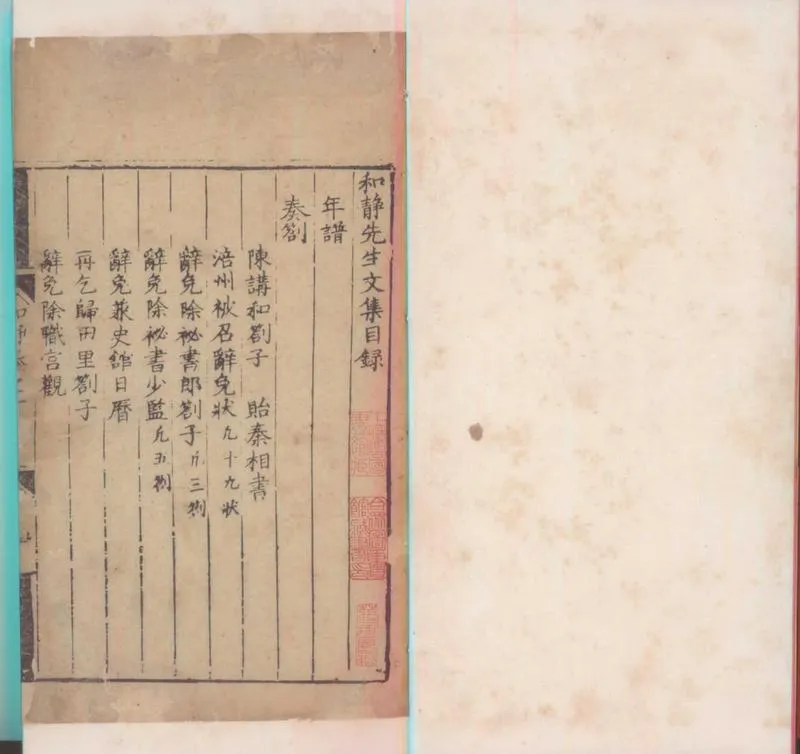 和靜先生文集目録
年譜
奏劄
陳講和劄子 貽秦相書
涪州被召辭免狀凡十九狀
辭免除祕書郎劄子凡三劄
辭免除祕書少監凡五劄
辭免兼史館日曆
再乞歸田里劄子
辭免除職宮觀